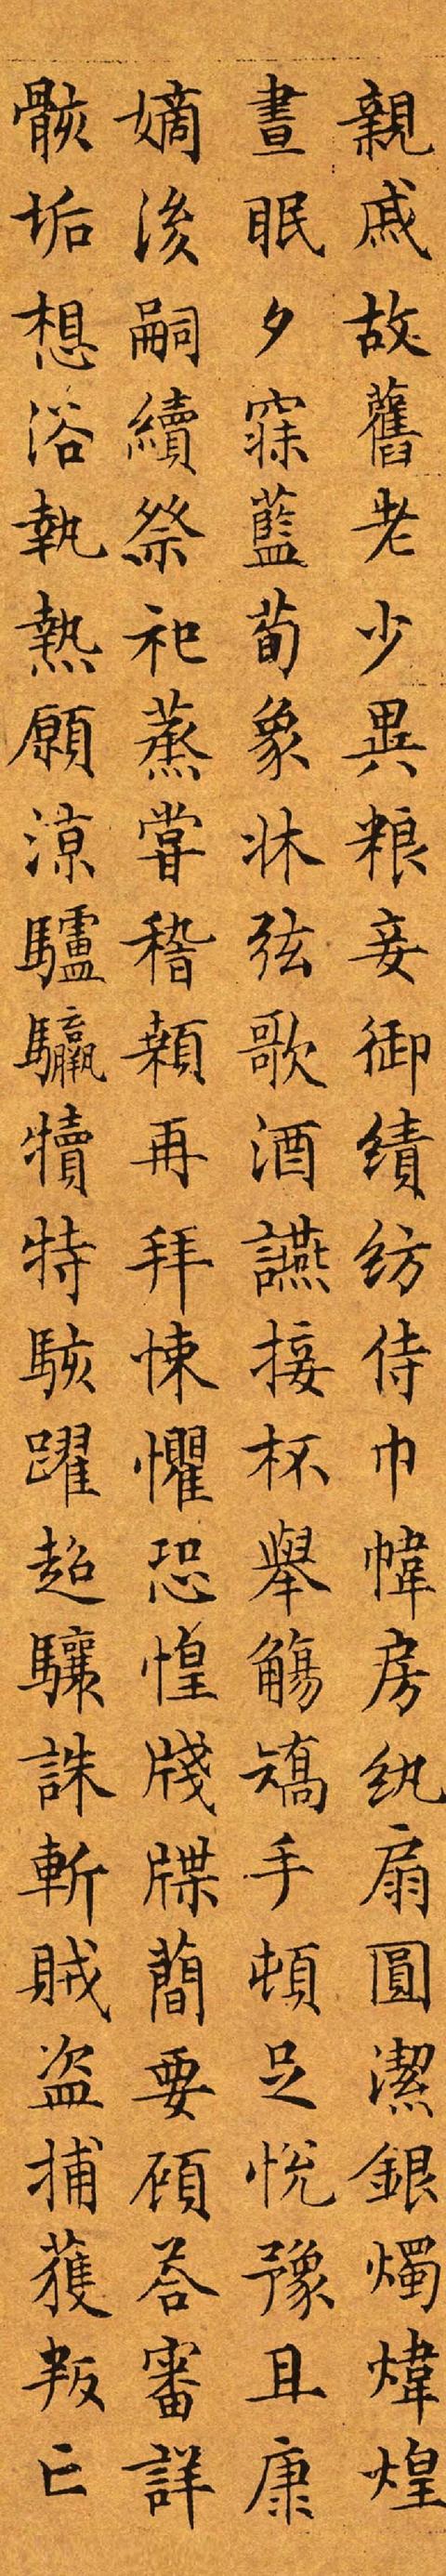 親戚故舊老少異粮妾御績紡侍巾幃房紈扇圓潔銀燭煒煌
晝眠夕寐藍荀象牀弦歌酒讌接杯舉觴矯手頓足悅豫且康
嫡後嗣續祭祀蒸嘗稽顙再拜悚懼恐惶牋牒簡要顧答審詳
骸垢想浴執熱願涼驢騾犢特駭躍超驤誅斬賊盗捕獲叛亡